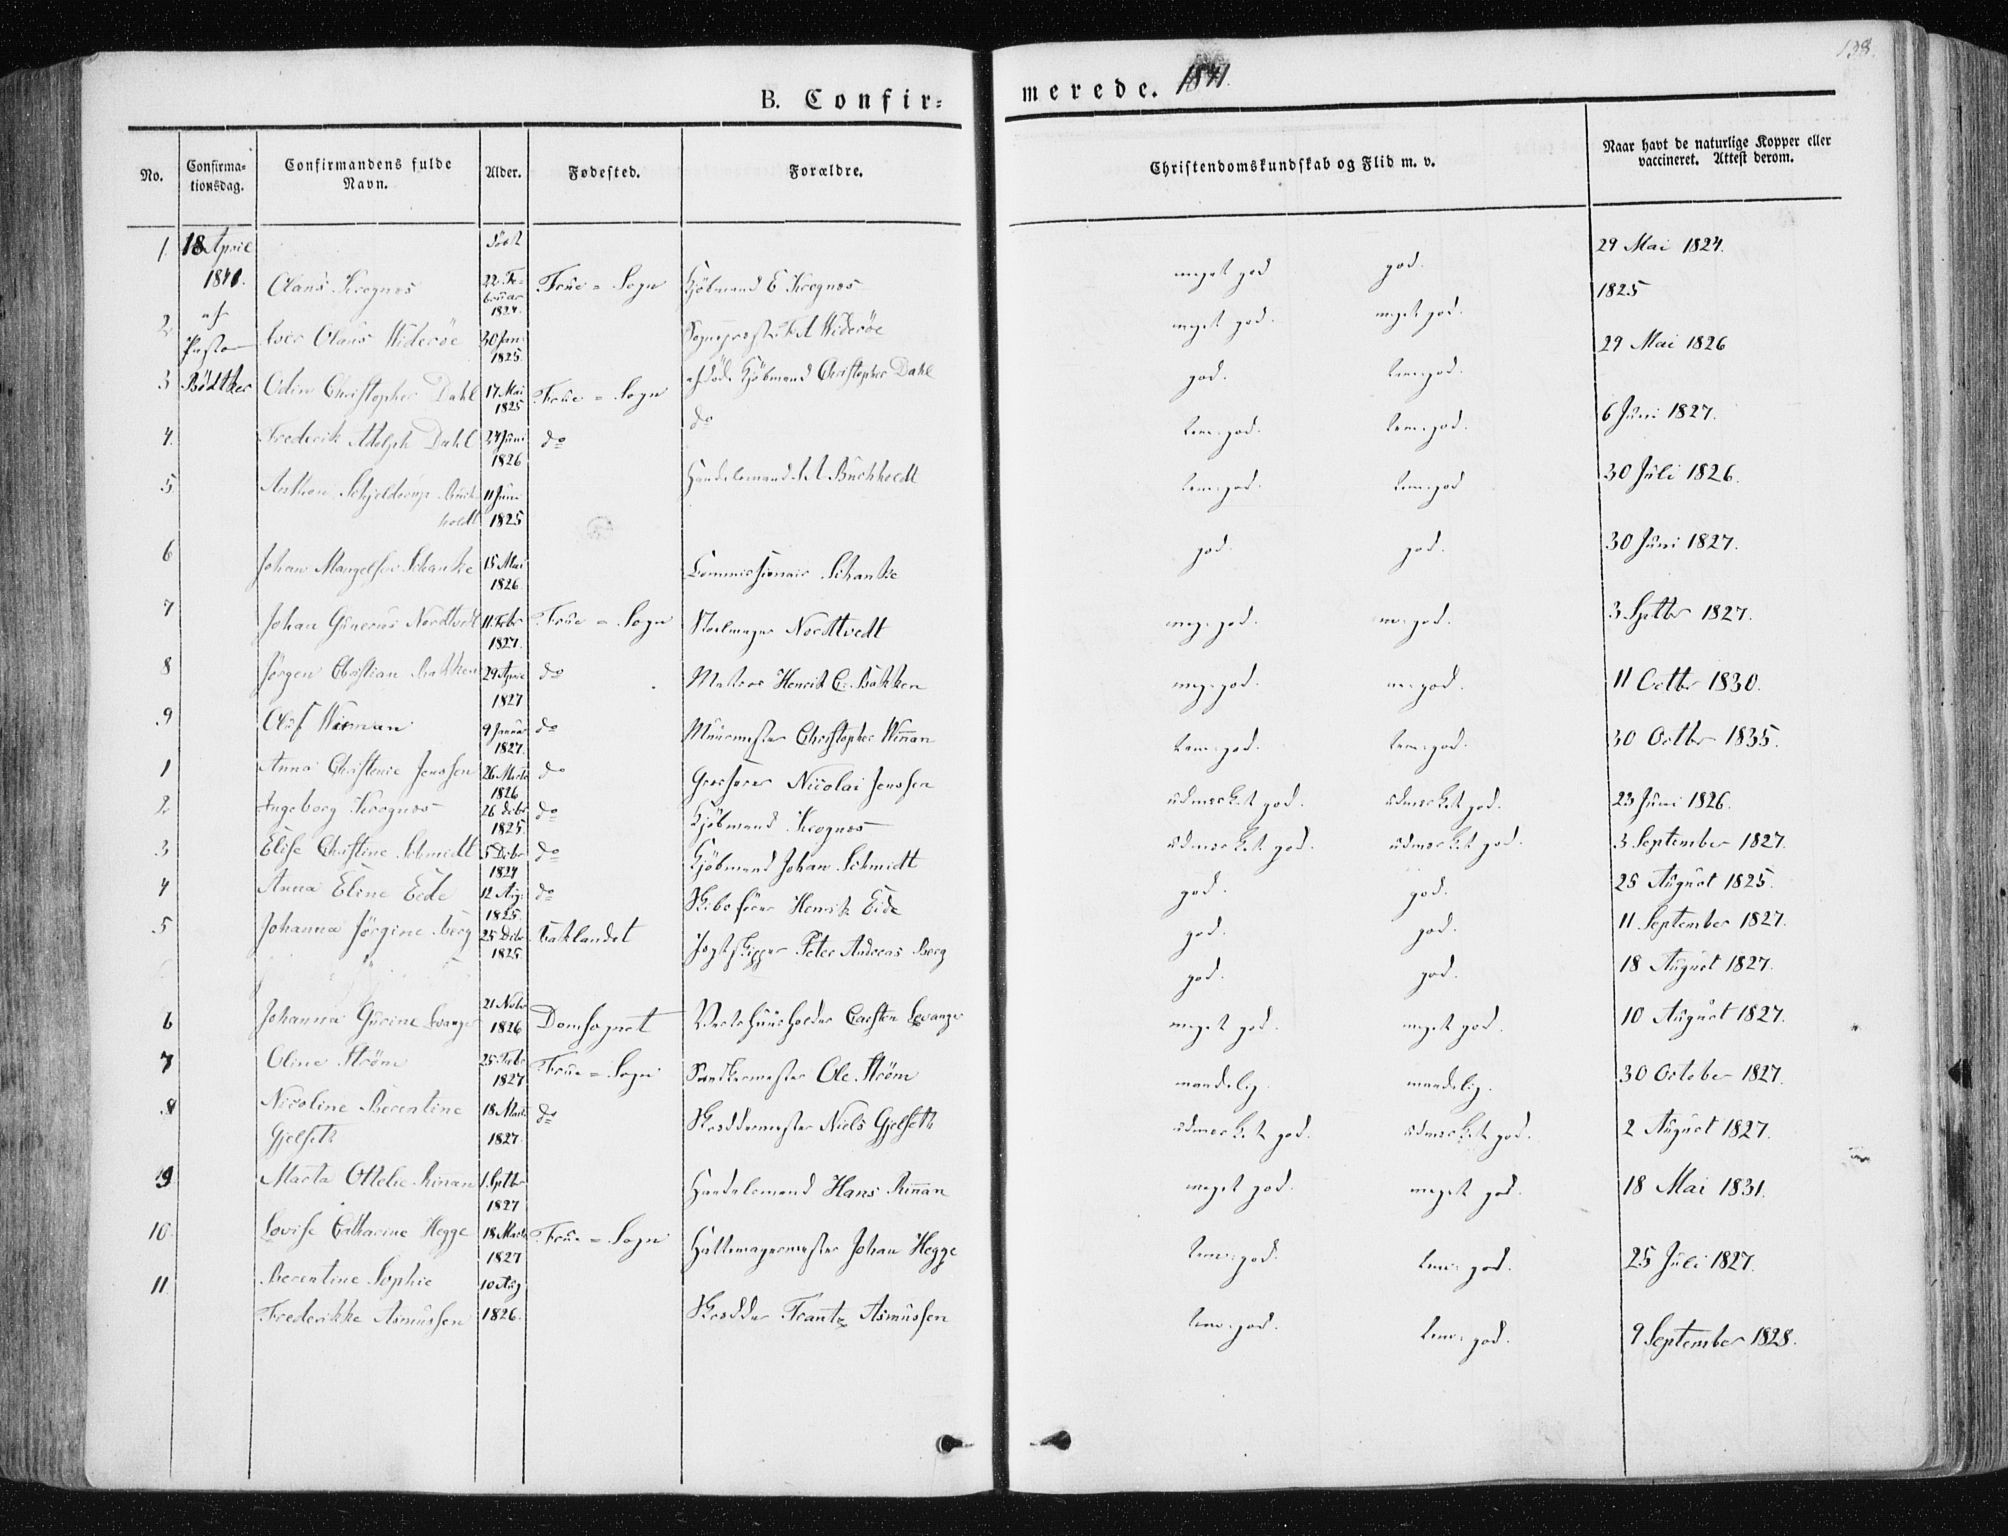 138.
B. Confir-
merede. 1841.
No.
Confirma-
tionsdag.
Confirmandens fulde
Navn.
Alder.
Fødested.
Forældre.
Christendomskundskab og Flid m. v.
Naar havt de naturlige Kopper eller
vaccineret. Attest derom.
1. 18 April 1841. Olaus Krognes 22 Februar 1824. Frue = Sogn Kjøbmand E Krognes meget god god. 29 Mai 1824.
2. af Pastor Iver Olaus Widerøe 30 Jan: 1825. Sognepræst Widerøe meget god. meget god. 1825
3 Bödtker Odin Christopher Dahl 17 Mai 1825 Frue = Sogn afdöde Kjöbmand Christopher Dahl god. tem: god. 29 Mai 1826
4. Frederik Adolph Dahl 24 Juni 1826 do do tem: god. tem: god. 6 Juni 1827.
5 Anthon Schjelderup Buchholdt 11 Juni 1825 Handelsmand A Buchholdt tem: god. tem: god 30 Juli 1826.
6 Johan Mangelsen Schanke 15 Mai 1826 Commissionair Schanke god. god. 30 Juni 1827.
7 Johan Gunerus Nordtvedt 11 Febr 1827. Frue = Sogn Stolmager Nordtvedt meg. god. m. god. 3 Septbr 1827.
8 Jörgen Christian Bakken 29 April 1827 do Matros Henrik C. Bakken meg. god. m. god. 11 Octbr 1830.
9 Oluf Winnan 9 Januar 1827. do Muurmester Christopher Winnan tem: god. tem: god. 30 Octbr 1835.
1 Anna Christence Jenssen 26 Marts 1826 do Grosserer Nicolai Jenssen udmærket god. udmærket god. 23 Juni 1826.
2 Ingeborg Krognes 26 Debr 1825 do Kjöbmand Krognes udmærket god. udmærket god. 3 September 1827.
3 Elise Christine Schmidt 5 Debr 1824 do Kjöbmand Johan Schmidt god. god. 25 August 1825.
4 Anna Eline Eide 12 Aug: 1825. do Skibsförer Henrik Eide god. god. 11 September 1827.
5 Johanna Jörgine Berg 25 Debr 1825 Baklandet Jagtskipper Peter Andreas Berg god. god. 18 August 1827.
6 Johanna Gurine Levanger 21 Nobr 1826 Domsognet Vertshuusholder Carsten Levanger meget god. meget god. 10 August 1827.
7 Oline Ström 25 Febr 1827 Frue = Sogn Snedkermester Ole Ström maadelig. maadelig. 30 October 1827.
8 Nicoline Berentine Gjelseth 18 Marts 1827. do Skreddermester Niels Gjelseth udmærket god. udmærket god. 2 August 1827.
9 Marta Ottelie Rinnan 1 Septbr 1827 Handelsmand Hans Rinnan meget god. meget god. 18 Mai 1831.
10. Lovise Catharine Hegge 18 Marts 1827 Frue = Sogn Hattemagermester Johan Hegge tem: god. tem: god. 25 Juli 1827.
11 Berentine Sophie Frederikke Asmussen 10 Aug 1826. Skredder Frantz Asmussen tem: god. tem: god. 9 September 1828.